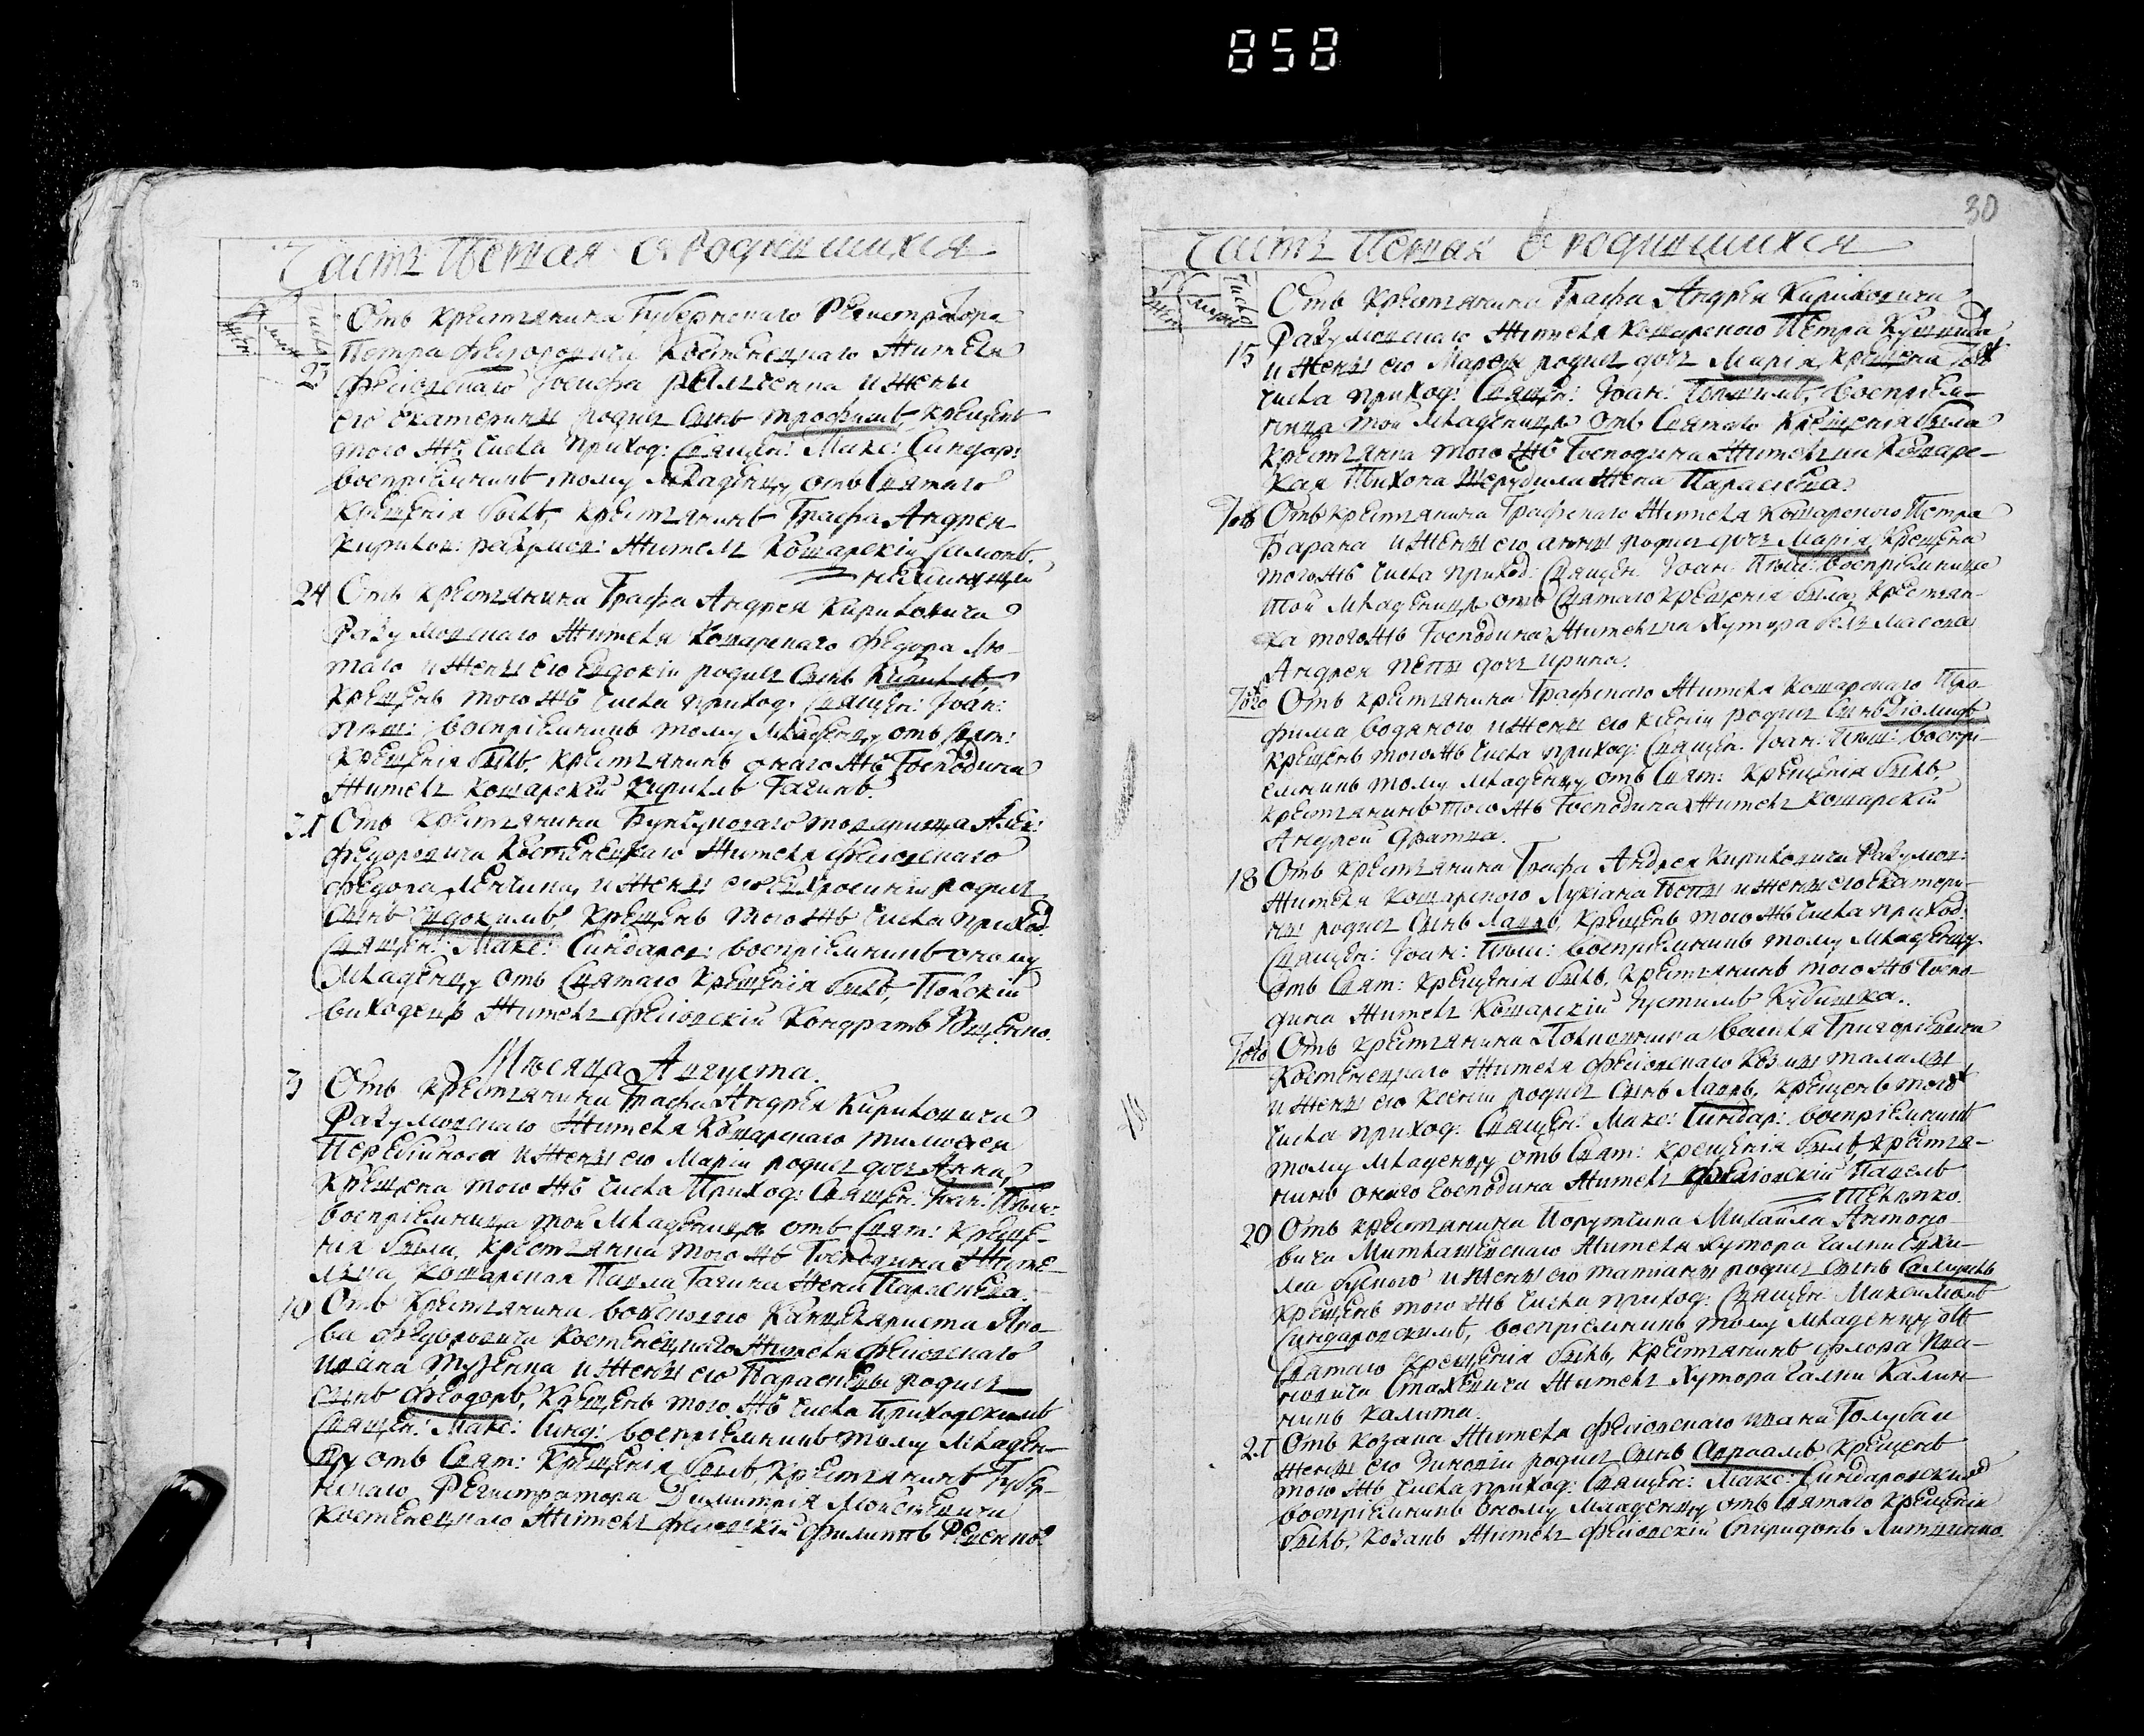 858
30
Часть Первая О Родившихся
Числа
муж:
жен:
Отъ крестянина Губернскаго Регистратора
Петра Федоровича Костенецкаго Жителя
21
Фесовскаго Іосифа и жены
его Екатерины родился сынъ Трофимъ, крещенъ
того жъ числа приход: Священ: Макс: Синдар:
воспріемникъ тому младенцу отъ Святаго
крещенія былъ, крестянинъ Графа Андрея
Кирилов: Разумов: Житель Кошарскій Самойлъ
24 Отъ крестянина Графа Андрея Кириловича
Разумовскаго Жителя Кошарскаго Федора Лю-
таго и жены его Евдокіи родился сынъ Кирилъ,
крещенъ того жъ числа приход: Священ: Іоан:
воспріемникъ тому младенцу отъ Свят:
крещенія былъ, крестянинъ онаго жъ Господина
Житель Кошарскій Кирилъ Гагинъ.
31 Отъ крестянина Бунчуковаго товарища Алек:
Федоровича Костенецкаго Жителя Фесовскаго
Федора и жены его родился
сынъ Евдокимъ, крещенъ того жъ числа приход:
Священ: Макс: Синдаров: воспріемникъ оному
младенцу отъ Святаго крещенія былъ, Полскій
виходецъ Житель Фесовскій Кондратъ Ющенко.
Мѣсяца Августа.
3 Отъ крестянина Графа Андрея Кириловича
Разумовскаго Жителя Кошарскаго Тимофея
Перебийноса и жены его Маріи родилась дочь Анна,
крещена того жъ числа Приход: Священ: Іоан:
воспріемница той младеницы отъ Свят: креще-
нія была, крестянка того жъ Господина Жите-
лька Кошарская Павла Гагина жена Параскева.
10 Отъ крестянина войскового Канцеляриста Яко-
ва Федоровича Костенецкаго Жителя Фесовскаго
Ивана и жены его Параскевы родился
сынъ Феодоръ, крещенъ того жъ числа Приходскимъ
Священ: Макс: Синд: воспріемникъ тому младен-
цу отъ Свят: крещенія былъ, крестянинъ Губер-
нскаго Регистратора Димитрія Моисеевича
Костенецкаго Житель Фесовскій Филиппъ Реденко
Часть Первая О родившихся
Числа
муж:
жен:
Отъ крестянина Графа Андрея Кириловича
Разумовскаго Жителя Кошарскаго Петра
15 и жены его Марфы родилась дочь Марія, крещена того жъ
числа приход: Священ: Іоан: воспріем-
ница той младеницы отъ Святаго крещенія была
крестянка того жъ Господина Жителька Кошарс-
кая Тихона Шерудила жена Параскева.
Того Отъ крестянина Графскаго Жителя Кошарского Петра
Барана и жены его Анны родилась дочь Марія, крещена
того жъ числа приход: Священ. Іоан воспріемница
той младеницы отъ Святаго крещенія была, крестян-
ка того жъ Господина Жителька хутора
Андрея дочь Ирина.
Того Отъ крестянина Графскаго Жителя Кошарскаго Тро-
фима Водяного и жены его Ксеніи родился сынъ Діомидъ
крещенъ того жъ числа приход: Священ: Іоан: воспрі-
емникъ тому младенцу отъ Свят: крещенія былъ,
крестянинъ того жъ Господина Житель Кошарскій
Андрей
18 Отъ крестянина Графа Андрея Кириловича Разумов:
Жителя Кошарского Лукіана и жены его Екатери-
ны родился сынъ Лавръ, крещенъ того жъ числа приход:
Священ: Іоан: воспріемникъ тому младенцу
отъ Свят: крещенія былъ, крестянинъ того жъ Госпо-
дина Житель Кошарскій Густимъ Кубишка.
Того Отъ крестянина Полковника Василя Григоріевича
Костенецкаго Жителя Фесовскаго Козмы
и жены его Ксеніи родился сынъ Лавръ, крещенъ того жъ
числа приход: Священ: Макс: Синдар: воспріемникъ
тому младенцу отъ Свят: крещенія былъ, крестя-
нинъ онаго Господина Житель Фесовскій Павелъ
20 Отъ крестянина Порутчика Михаила Антоно-
вича Жителя хутора
и жены его Татианы родился сынъ Самуилъ
крещенъ того жъ числа приход: Священ: Максимомъ
Синдаровскимъ, воспріемникъ тому младенцу отъ
Святаго крещенія былъ, крестянинъ Флора
Стахевича Житель хутора Калин-
никъ Калита.
21 Отъ козака Жителя Фесовскаго Ивана Голубая
жены его родился сынъ Авраамъ крещенъ
того жъ числа приход: Священ: Макс: Синдаровскимъ
воспріемникъ оному младенцу отъ Святаго крещенія
былъ, козакъ Житель Фесовскій Спиридонъ